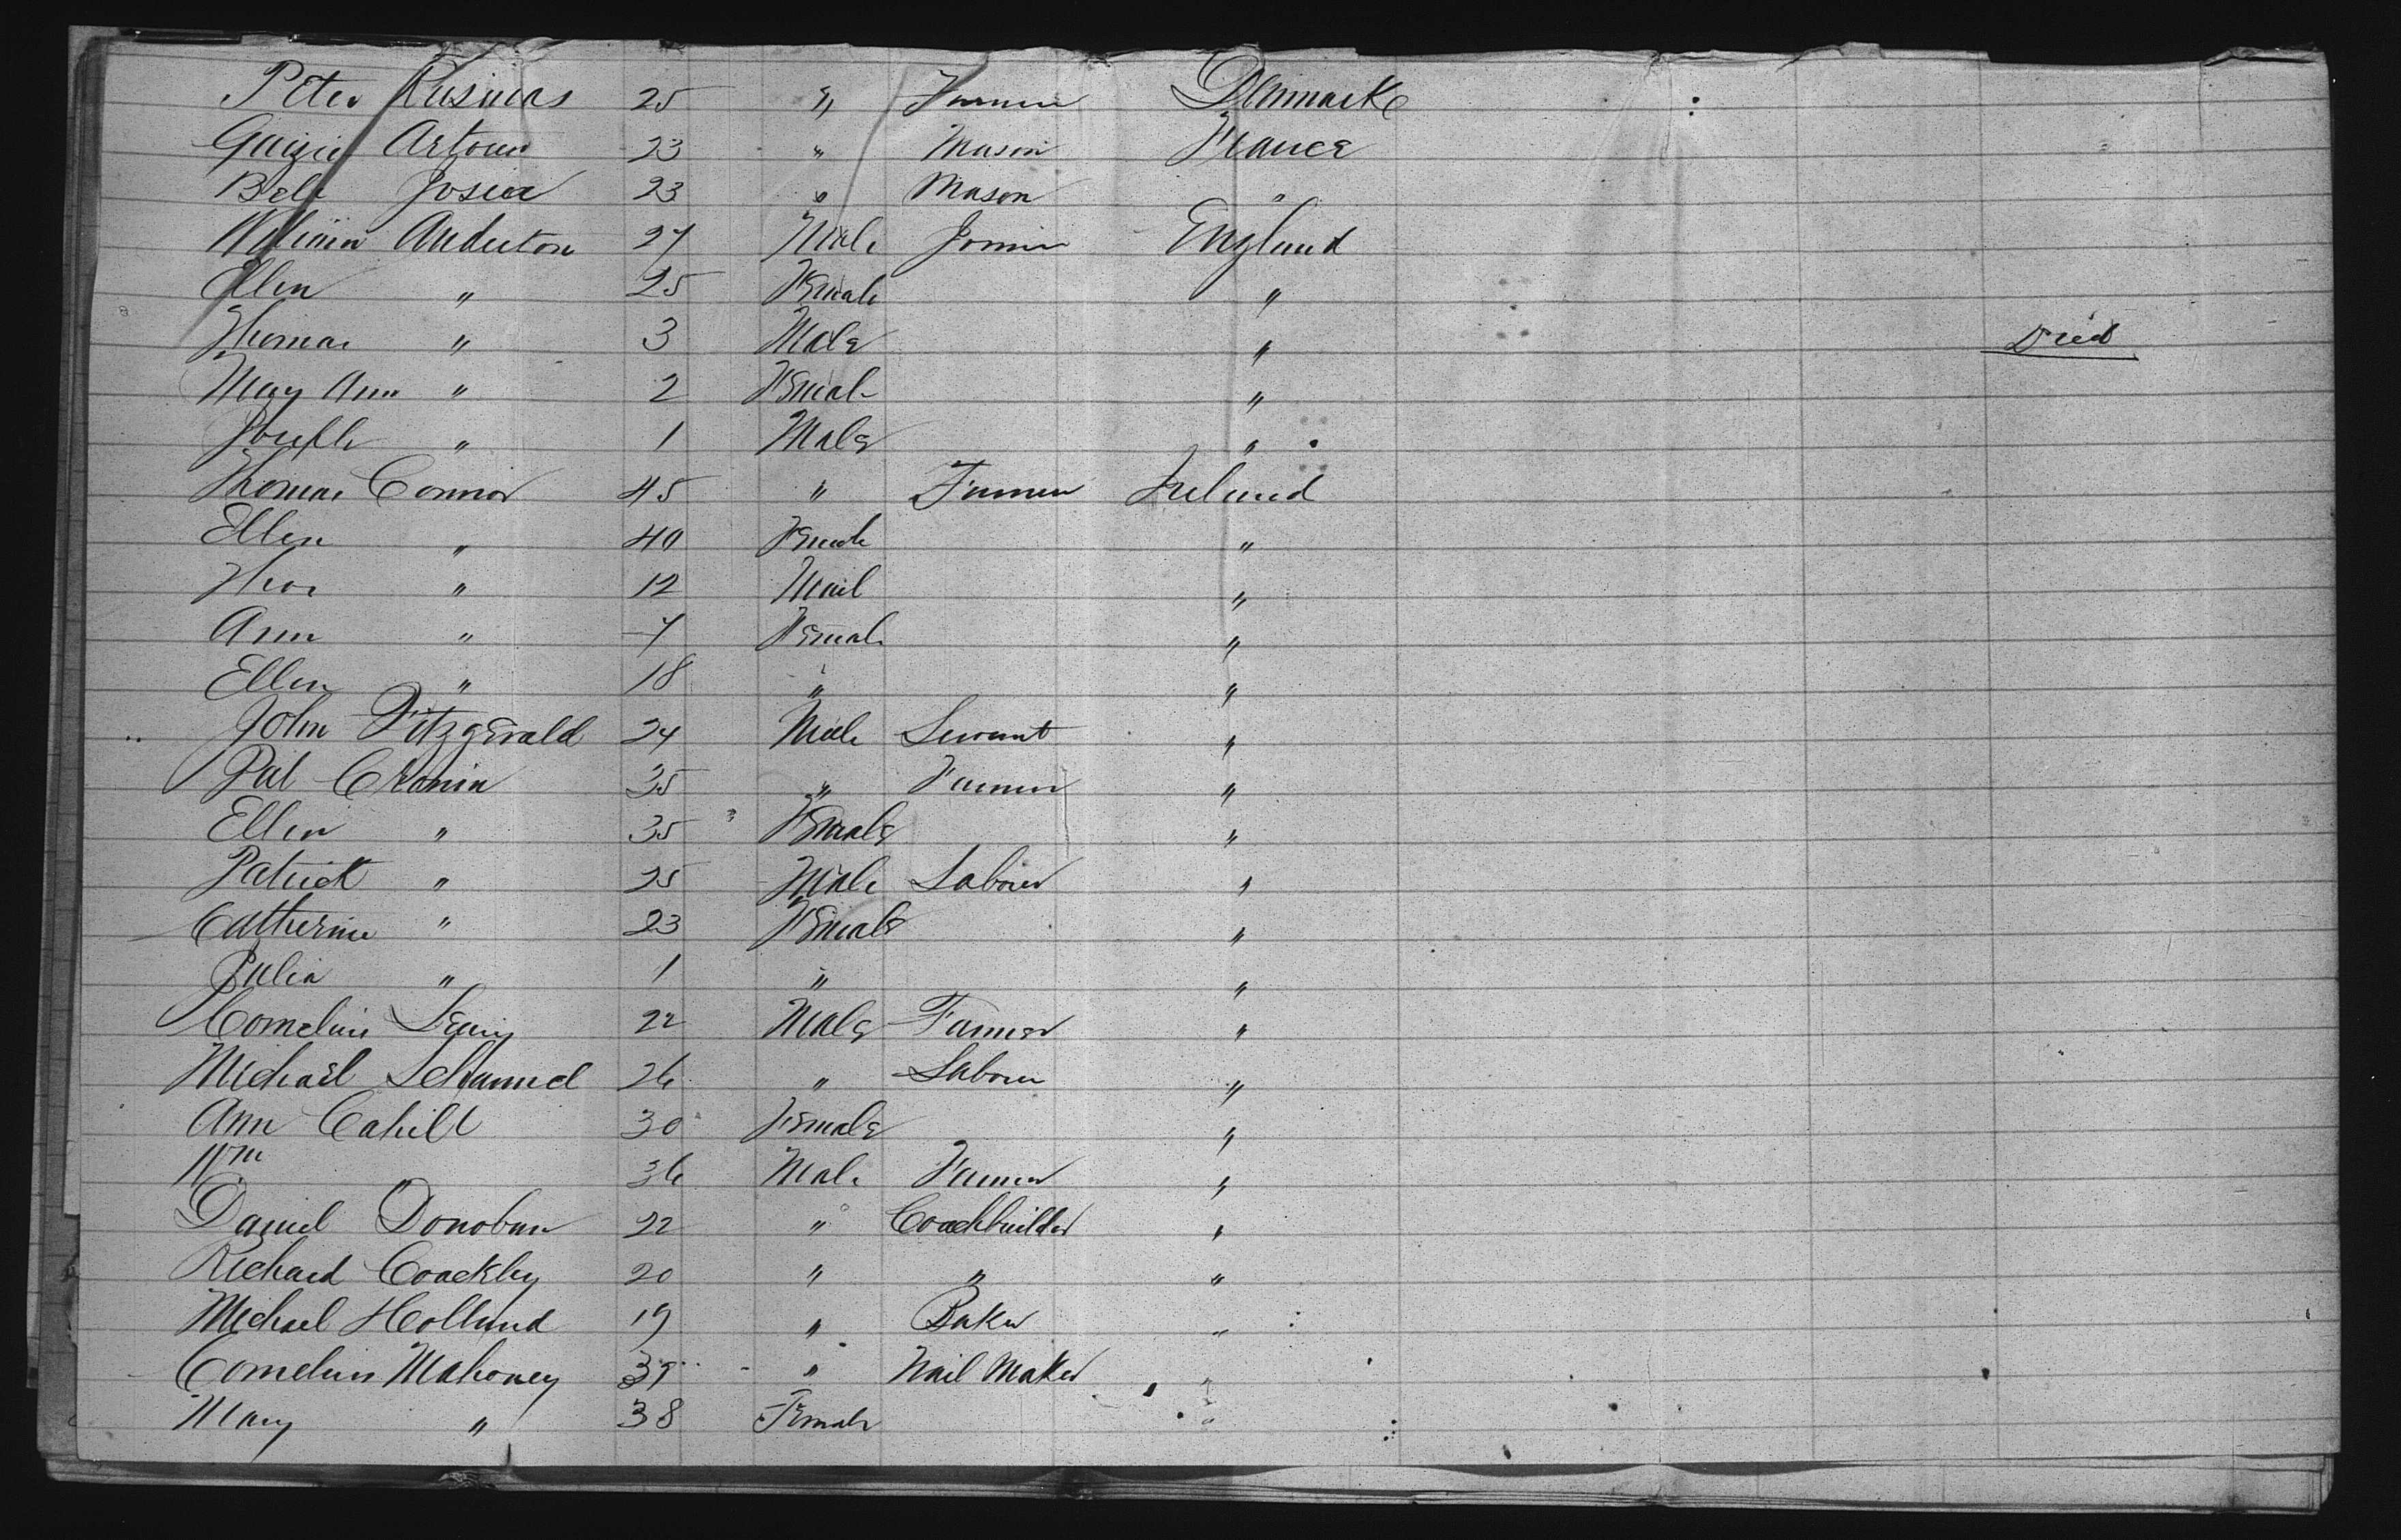 Peter Rusmus 25 " Farmer Denmark
Artour 23 " Mason France
Bele Josia 23 " Mason "
William Anderton 27 Male Joiner England
Ellen " 25 Female "
Thomas " 3 Male " Died
Mary Ann " 2 Female "
Joseph " 1 Male "
Thomas Connor 45 " Farmer Ireland
Ellen " 40 Female "
Thos " 12 Mail "
Ann " 7 Female "
Ellen " 18 " "
John Fitzgerald 24 Male Servant "
Pat Cronin 35 " Farmer "
Ellen " 35 Female "
Patrick " 25 Male Labourer "
Catherine " 23 Female "
Julia " 1 " "
Cornelius 22 Male Farmer "
Michael 26 " Labourer "
Ann Cahill 30 Female "
Wm 36 Male Farmer "
Daniel Donoban 22 " Coachbuilder "
Richard Coackley 20 " " "
Michael Holland 19 " Baker "
Cornelius Mahoney 39 " Nail Maker "
Mary " 38 Female "